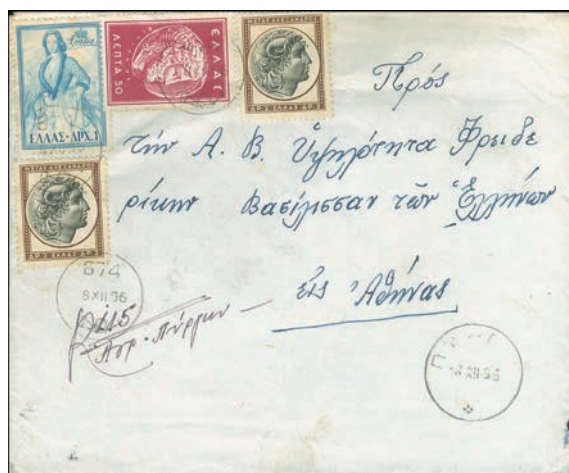 ΕΛΛΑΣ
ΛΕΠΤΑ 50
ΕΛΛΑΣ·ΔΡΧ.1
ΜΕΓΑΣ ΑΛΕΞΑΝΔΡΟΣ
ΔΡ.2 ΕΛΛΑΣ ΔΡ.2
ΜΕΓΑΣ ΑΛΕΞΑΝΔΡΟΣ
ΔΡ.2 ΕΛΛΑΣ ΔΡ.2
Πρός
τήν Α. Β. Ὑψηλότητα Φρειδε
ρίκην Βασίλισσαν τῶν Ἑλλήνων
εἰς Ἀθήνας
674
8 XII 56
115
XII 56